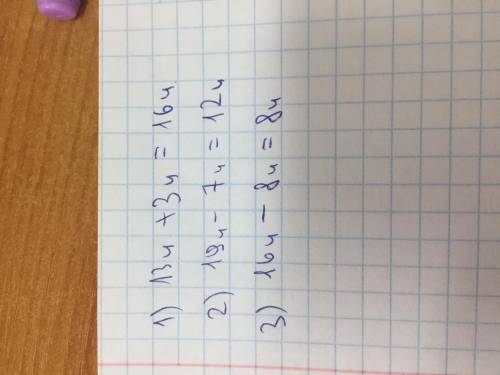 1) 13ч + 3ч = 16ч
2) 19ч - 7ч = 12ч
3) 16ч - 8ч = 8ч